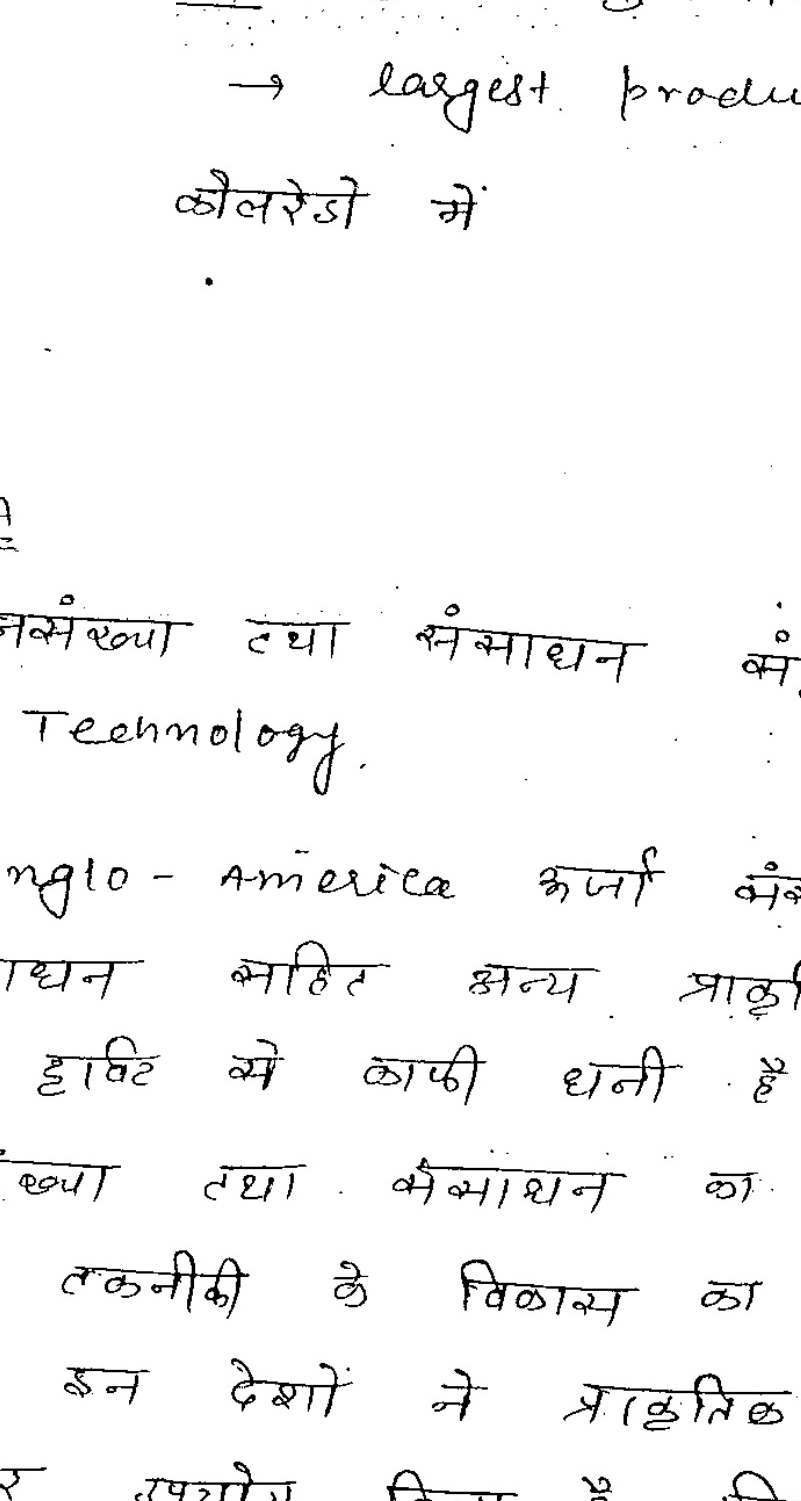 → largest produ
कौलरेडो में
नसंख्या तथा संसाधन सं
Technology.
nglo - America ऊर्जा संस
ाधन सहित अन्य प्राकृ
दृष्टि से काफी धनी है
ंख्या तथा संसाधन का
तकनीकी के विकास का
इन देशों ने प्राकृतिक
र उपयोग किया है